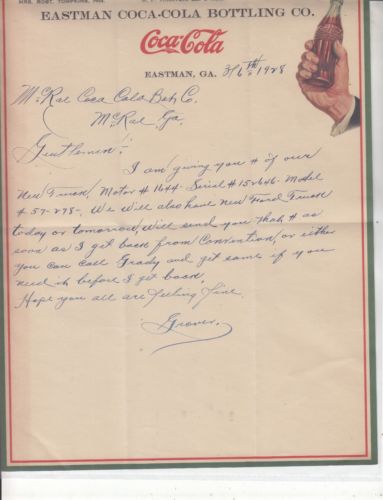 MRS. ROBT. TOMPKINS, PRES.
EASTMAN COCA-COLA BOTTLING CO.
Coca-Cola
EASTMAN, GA. 3/6th 1928
McRae Coca Cola Bot. Co.
McRae Ga.
Gentlemen:-
I am giving you # of our
New Truck, Motor # 1644 Serial # 152646. Model
# 57-298. We will also have New Ford Truck
today or tomorrow, will send you that # as
soon as I get back from Convention, or either
you can call Grady and get same if you
need it before I get back.
Hope you all are feeling fine.
Grover.